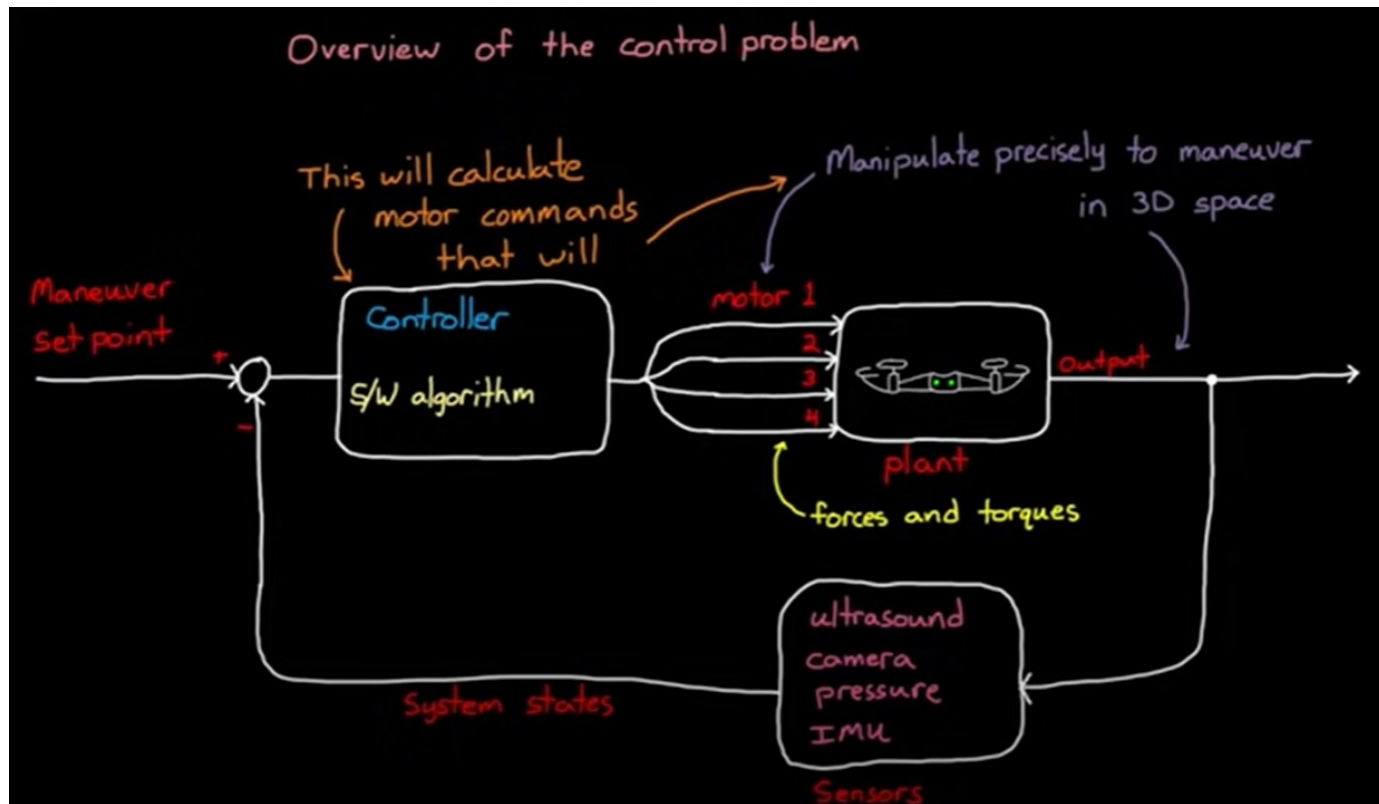 Overview of the control problem
This will calculate
motor commands
that will
Manipulate precisely to maneuver
in 3D space
Maneuver
set point
+
-
Controller
S/W algorithm
motor 1
2
3
4
Output
plant
forces and torques
ultrasound
camera
pressure
IMU
System states
Sensors